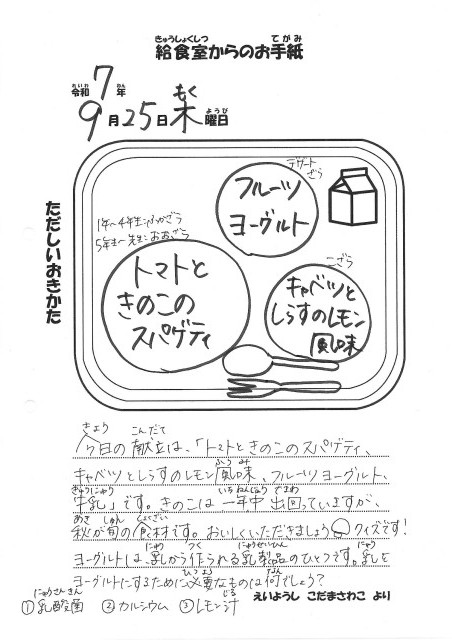 給食室からのお手紙
令和7年
9月25日木曜日
ただしいおきかた
デザートざら
フルーツ
ヨーグルト
1年〜4年生:ふかざら
5年生〜先生:おおざら
トマトと
きのこの
スパゲティ
こざら
キャベツと
しらすのレモン
風味
今日の献立は、「トマトときのこのスパゲティ、
キャベツとしらすのレモン風味、フルーツヨーグルト、
牛乳」です。きのこは一年中出回っていますが、
秋が旬の食材です。おいしくいただきましょう クイズです!
ヨーグルトは、乳から作られる乳製品のひとつです。乳を
ヨーグルトにするために必要なものは何でしょう?
えいようし こだまさわこ より
①乳酸菌 ②カルシウム ③レモン汁